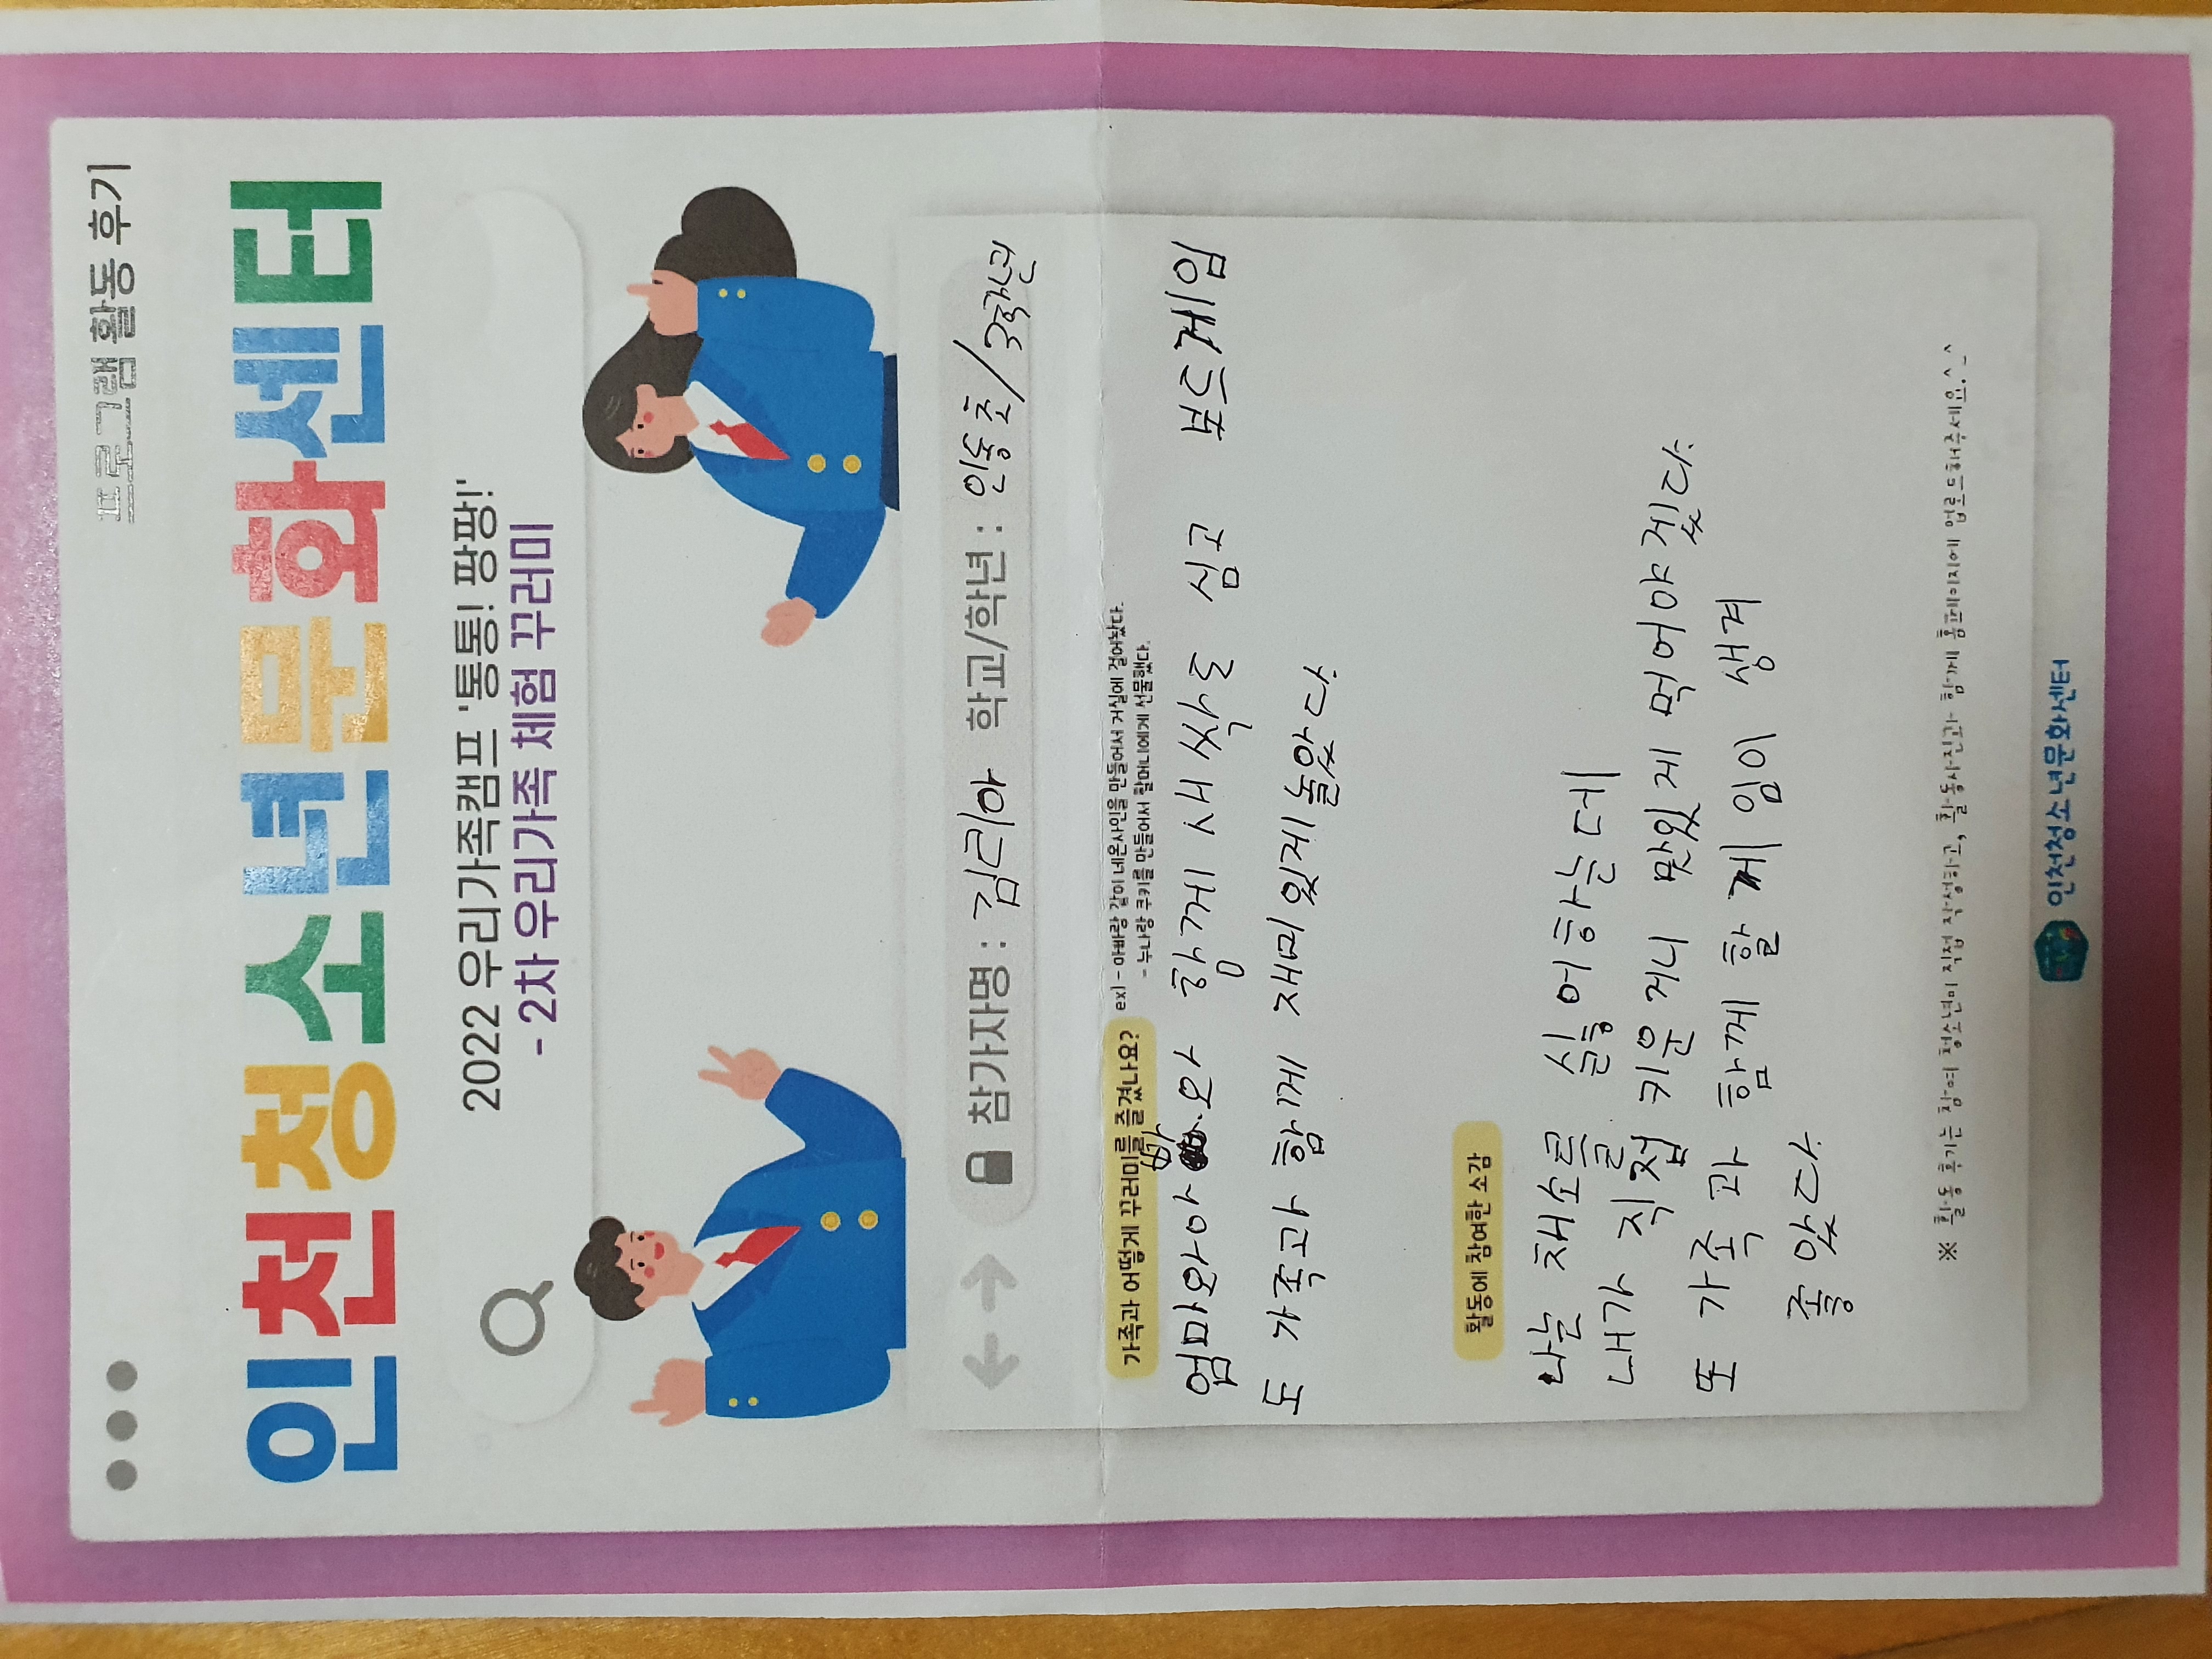 프로그램 활동 후기
인천청소년문화센터
2022 우리가족캠프 '통통! 팡팡!'
- 2차 우리가족 체험 꾸러미
참가자명 : 김리아 학교/학년 : 인동초/3학년
가족과 어떻게 꾸러미를 즐겼나요? ex) - 아빠랑 같이 네온사인을 만들어서 거실에 걸어놨다.
- 누나랑 쿠키를 만들어서 할머니에게 선물했다.
엄마와아빠와 함께 새싹도 심고 보드게임
도 가족과 함께 재미있게놀았다.
활동에 참여한 소감
나는 채소를 싫어하는데
내가 직접 키운거니 맛있게 먹어야겠다.
또 가족과 함께 할 게임이 생겨
좋았다
※ 활동 후기는 참여 청소년이 직접 작성하고, 활동사진과 함께 홈페이지에 업로드해주세요.^_^
인천청소년문화센터